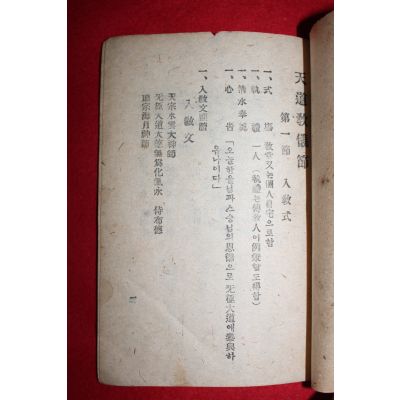 天道敎儀節
第一節 入敎式
一、式 場 敎堂又는個人自宅으로함
一、執 禮 一人 (執禮는傳敎人이例兼할도得함)
一、淸水奉奠
一、心 告 「오늘한울님과스승님의恩德으로无極大道에參與하
유나이다」
一、入敎文朗讀
入敎文
天宗水雲大神師
无極大道大德無爲化氣水 侍布德
道宗海月神師